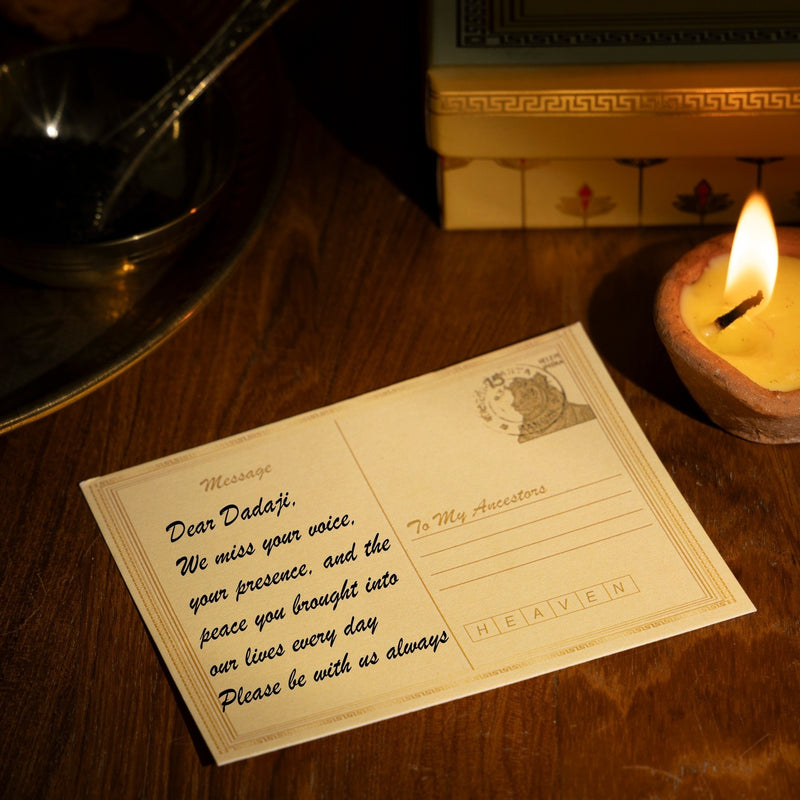 Message
Dear Dadaji,
We miss your voice,
your presence, and the
peace you brought into
our lives every day
Please be with us always
To My Ancestors
HEAVEN